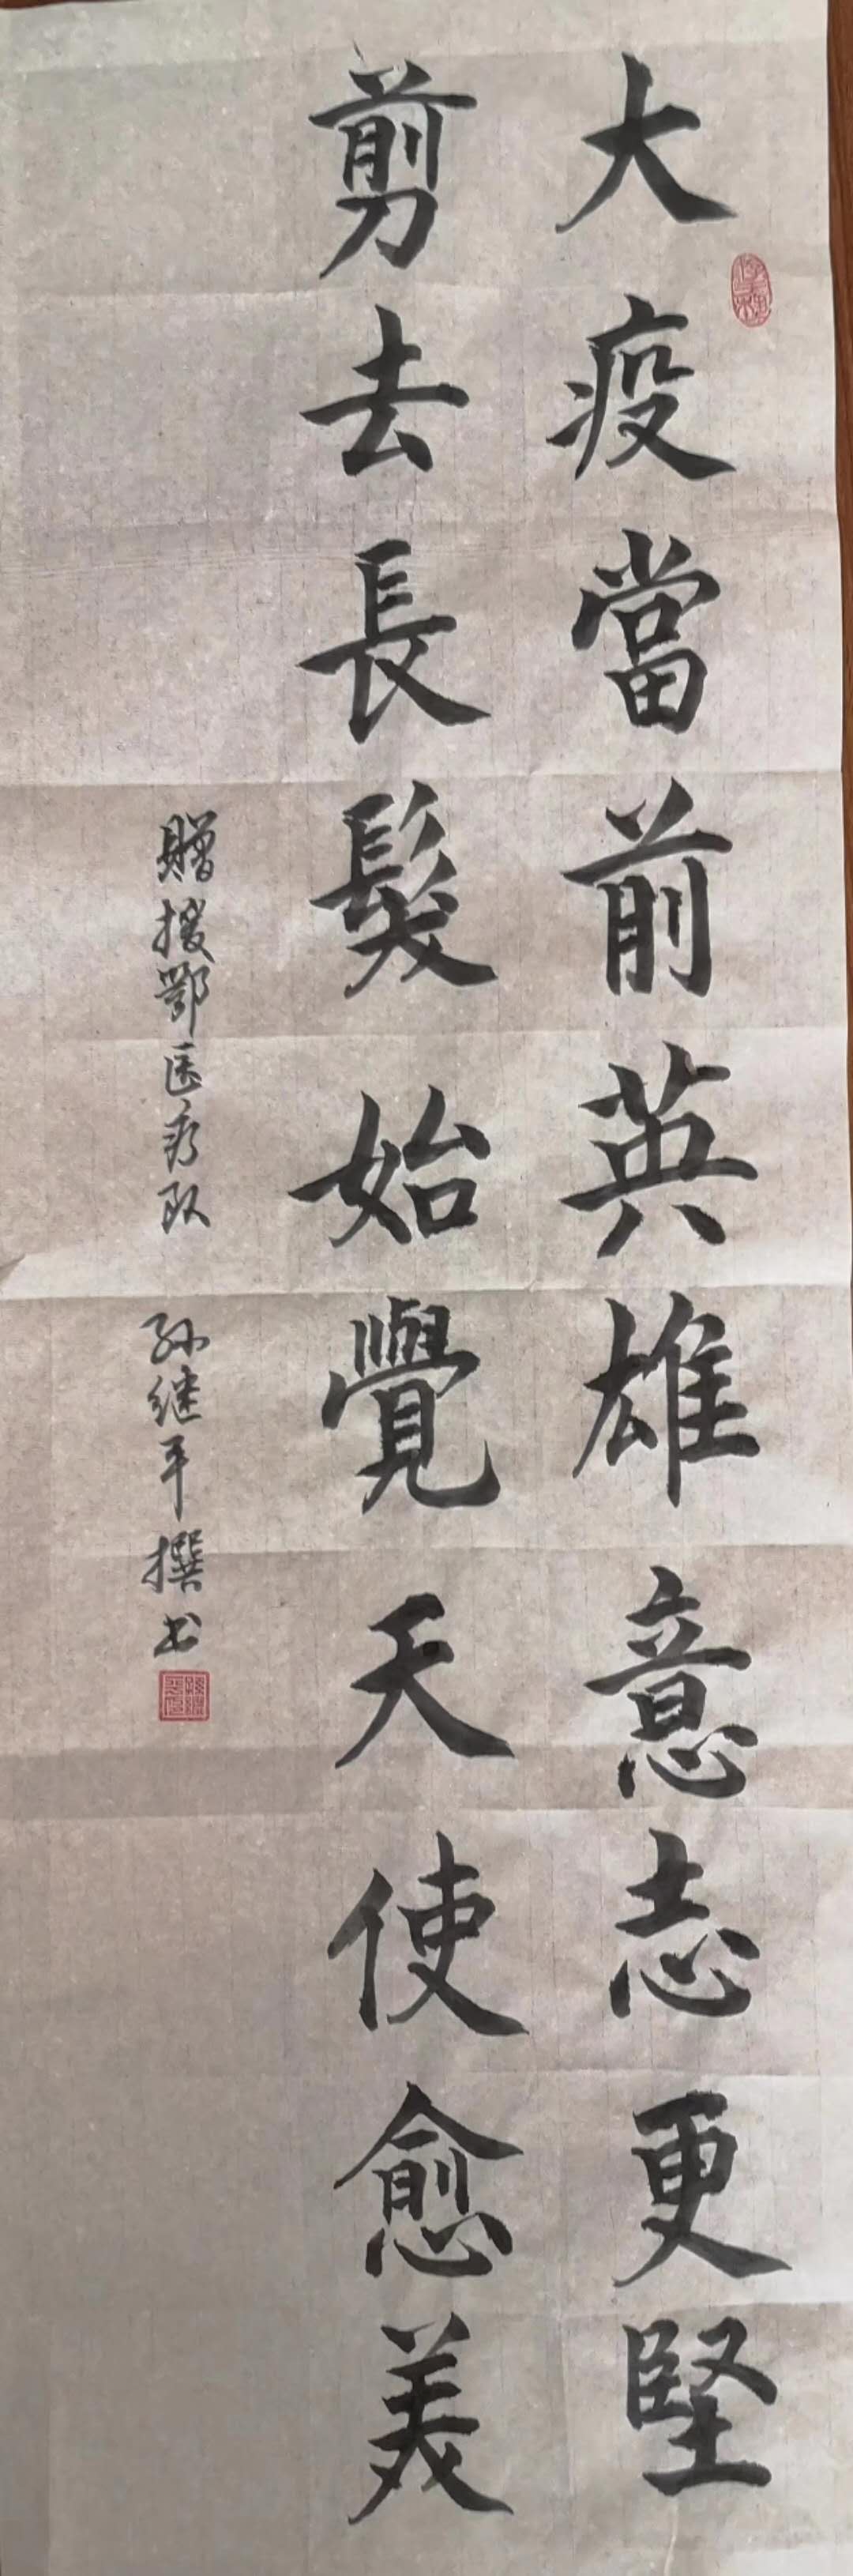 大疫當前英雄意志更堅
剪去長髮始覺天使愈美
贈援鄂医疗队 孙继平撰书